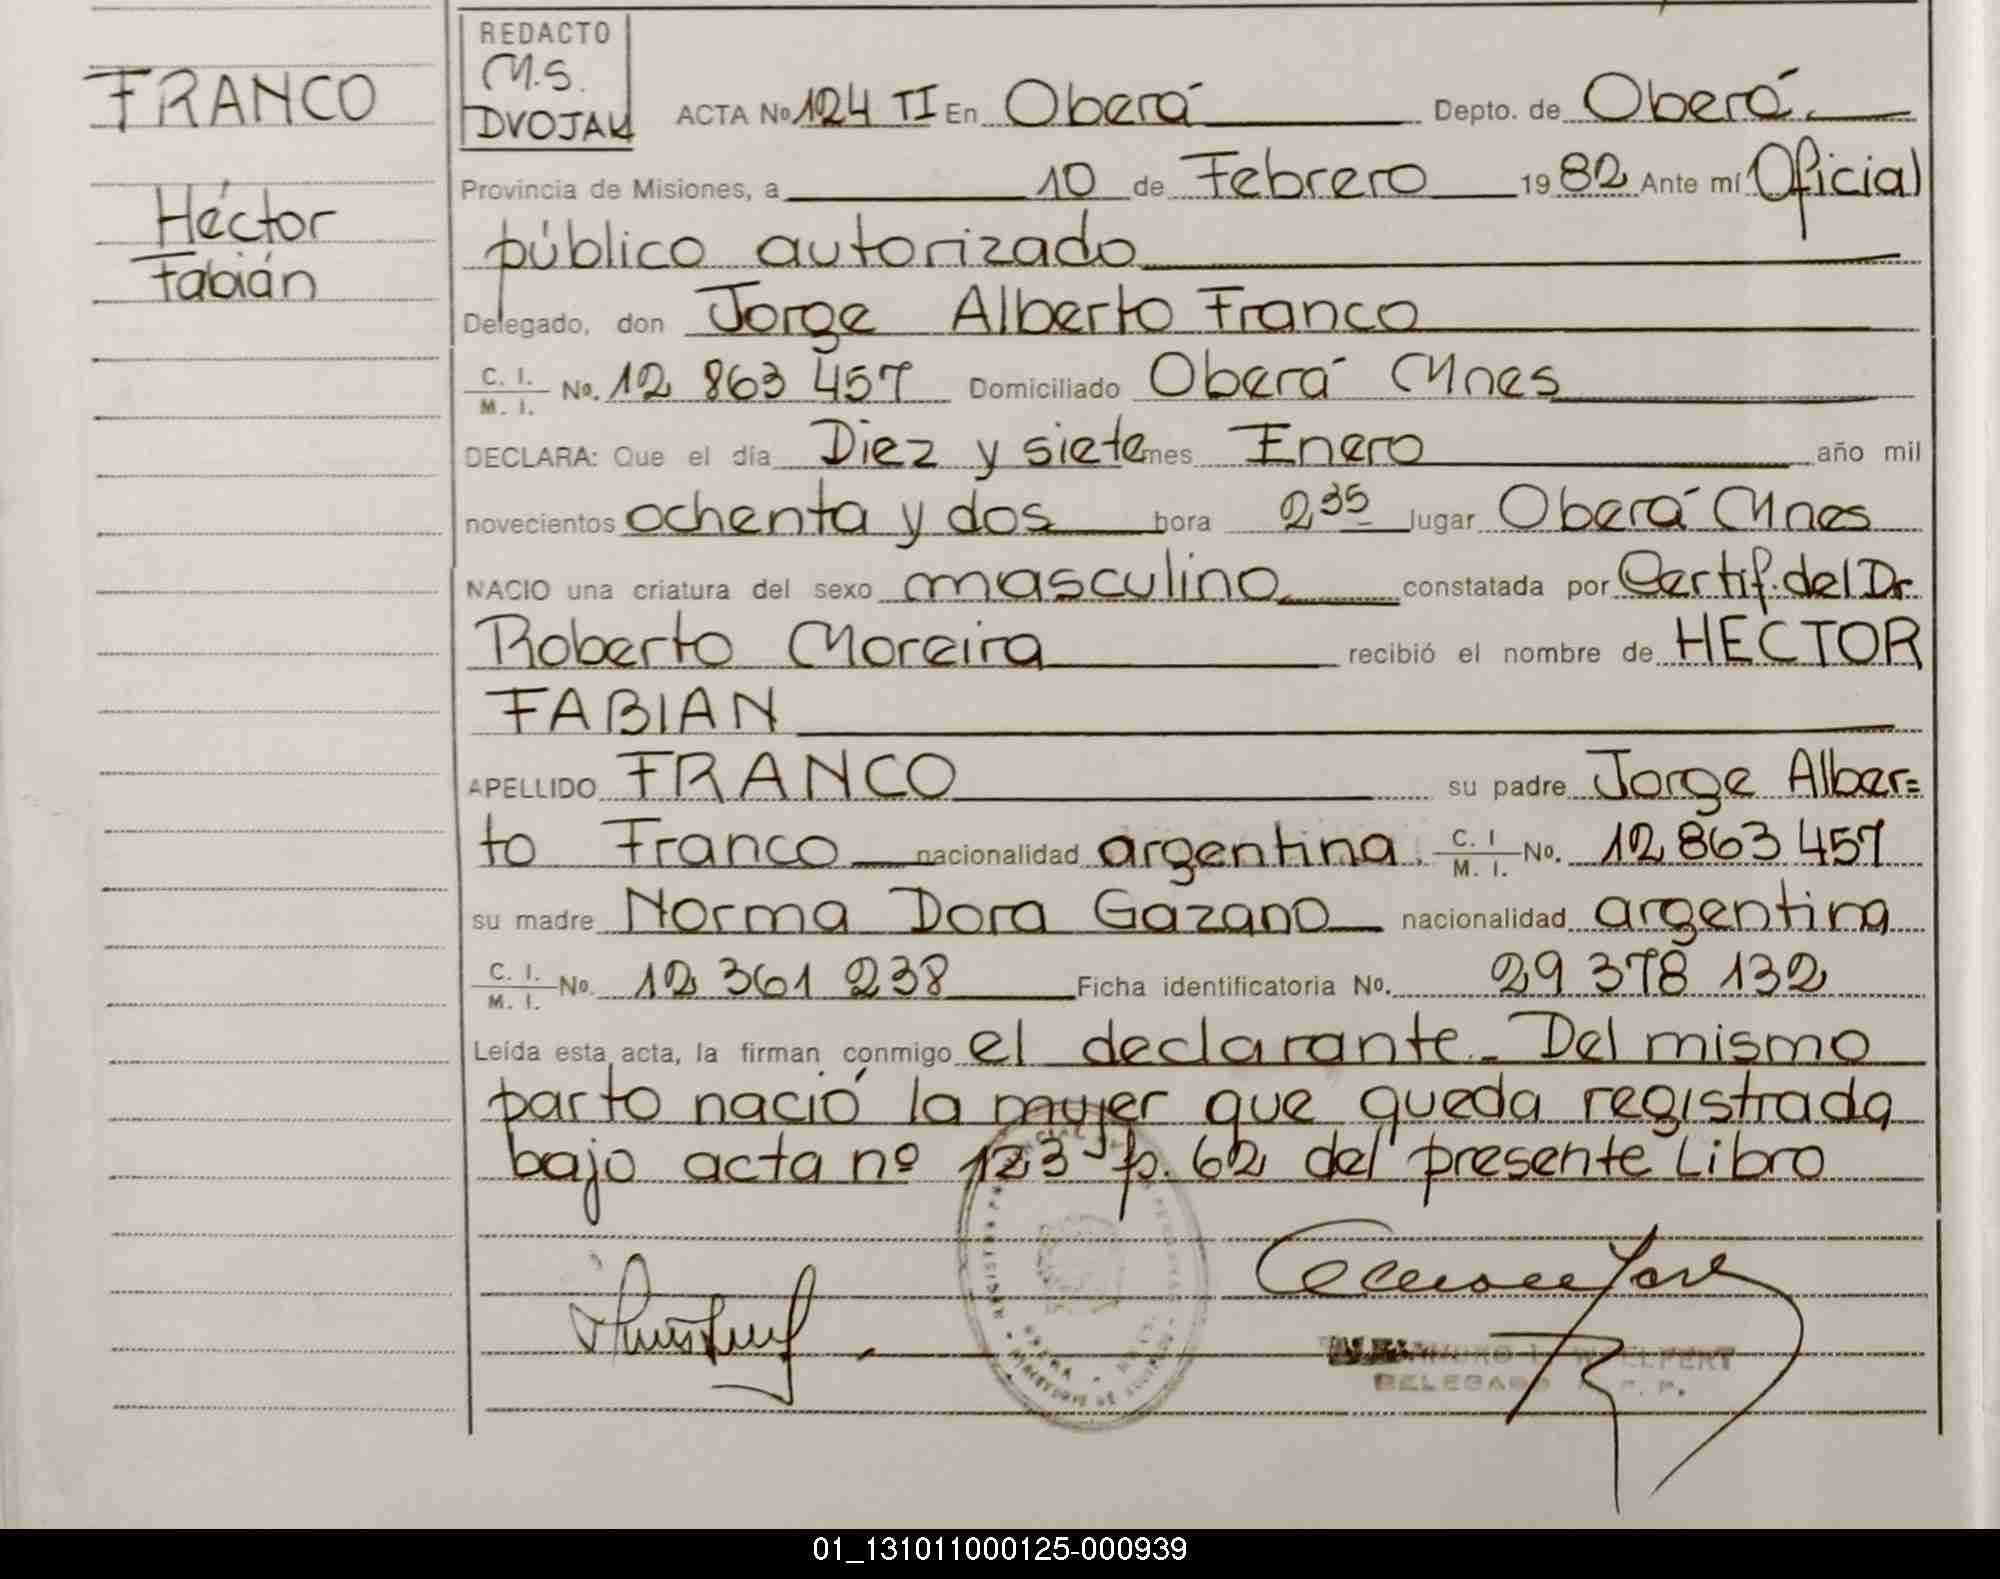 FRANCO
Héctor
Fabián
REDACTO
M.S.
DVOJAK
ACTA No 124 TI En Oberá Depto. de Oberá.
Provincia de Misiones, a 10 de Febrero 1982 Ante mí Oficial
público autorizado
Delegado, don Jorge Alberto Franco
C. I. / M. I. No. 12 863 457 Domiciliado Oberá Mnes
DECLARA: Que el día Diez y siete mes Enero año mil
novecientos ochenta y dos hora 2 35 lugar Oberá Mnes
NACIO una criatura del sexo masculino constatada por Certif. del Dr.
Roberto Moreira recibió el nombre de HECTOR
FABIAN
APELLIDO FRANCO su padre Jorge Alber=
to Franco nacionalidad argentina. C. I / M. I. No. 12 863 457
su madre Norma Dora Gazano nacionalidad argentina
C. I. / M. I. No. 12 361 238 Ficha identificatoria No. 29 378 132
Leída esta acta, la firman conmigo el declarante. Del mismo
parto nació la mujer que queda registrada
bajo acta nº 123 fo. 62 del presente Libro
DELEGADO
01_131011000125-000939